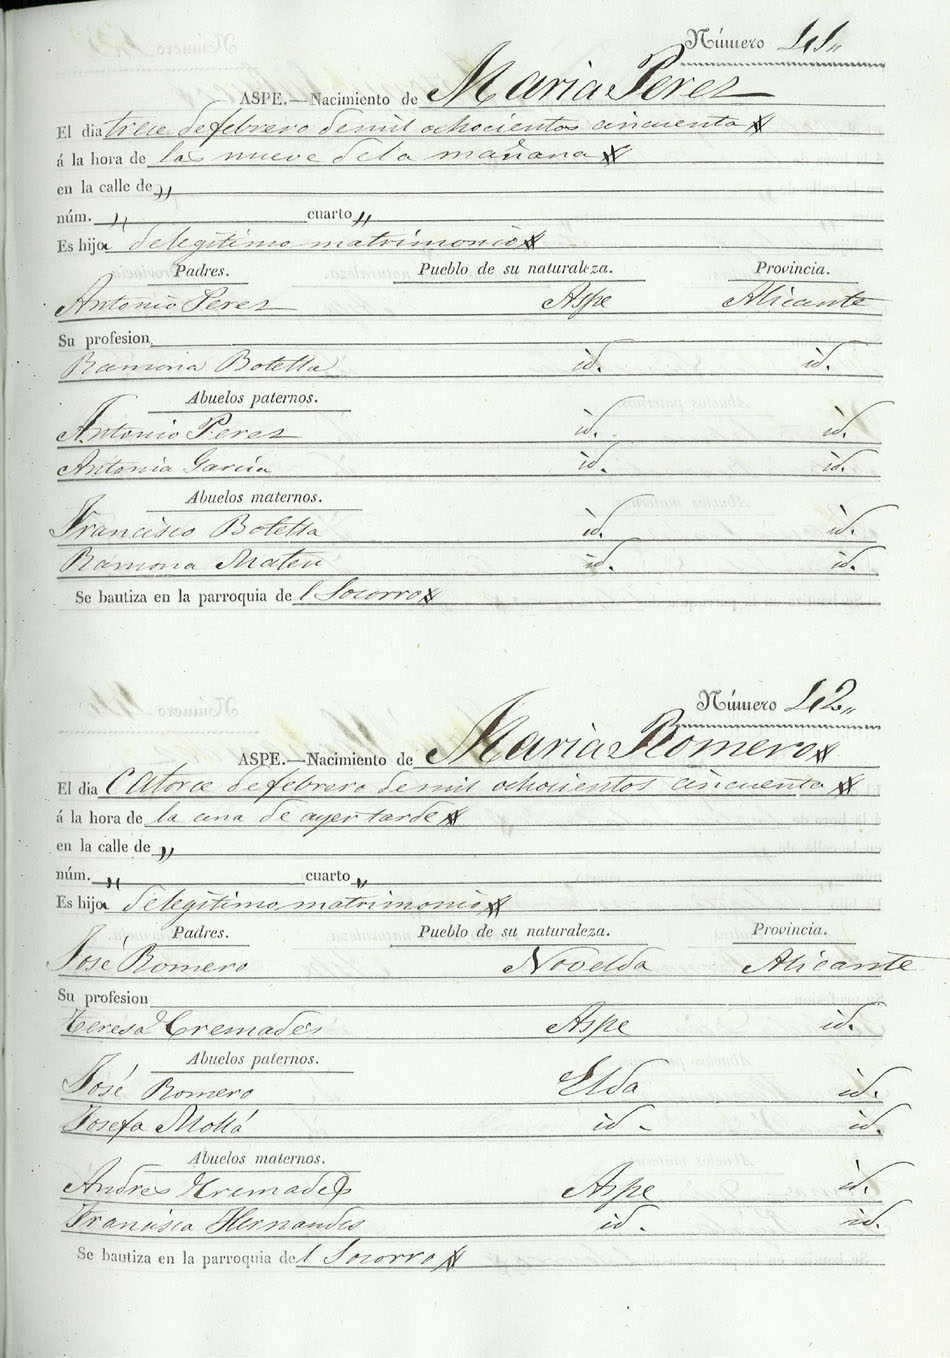 Número 41
ASPE.—Nacimiento de Maria Perez
El dia trece de febrero de mil ochocientos cincuenta
á la hora de las nueve de la mañana
en la calle de „
núm. „ cuarto „
Es hija de legítimo matrimonio
Padres. Pueblo de su naturaleza. Provincia.
Antonio Perez Aspe Alicante
Su profesion
Ramona Botella id. id.
Abuelos paternos.
Antonio Perez id. id.
Antonia Garcia id. id.
Abuelos maternos.
Francisco Botella id. id.
Ramona Mateu id. id.
Se bautiza en la parroquia del Socorro
Número 42
ASPE.—Nacimiento de Maria Romero
El dia Catorce de febrero de mil ochocientos cincuenta
á la hora de la una de ayer tarde
en la calle de „
núm. „ cuarto „
Es hija de legítimo matrimonio
Padres. Pueblo de su naturaleza. Provincia.
José Romero Novelda Alicante
Su profesion
Teresa Cremades Aspe id.
Abuelos paternos.
José Romero Elda id.
Josefa Mollá id - id.
Abuelos maternos.
Andres Cremades Aspe id.
Francisca Hernandes id. id.
Se bautiza en la parroquia del Socorro